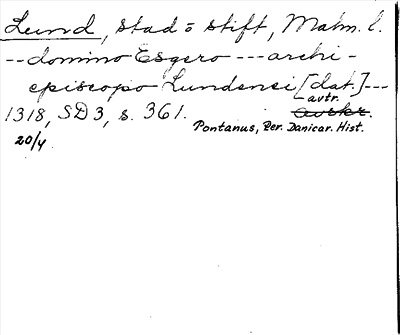 Lund, stad o stift, Malm. l.
-- domino Esgero --- archi-
episcopo Lundensi [dat.] ---
avtr.
1318, SD 3, s. 361. avskr.
Pontanus, Rer. Danicar. Hist.
20/4